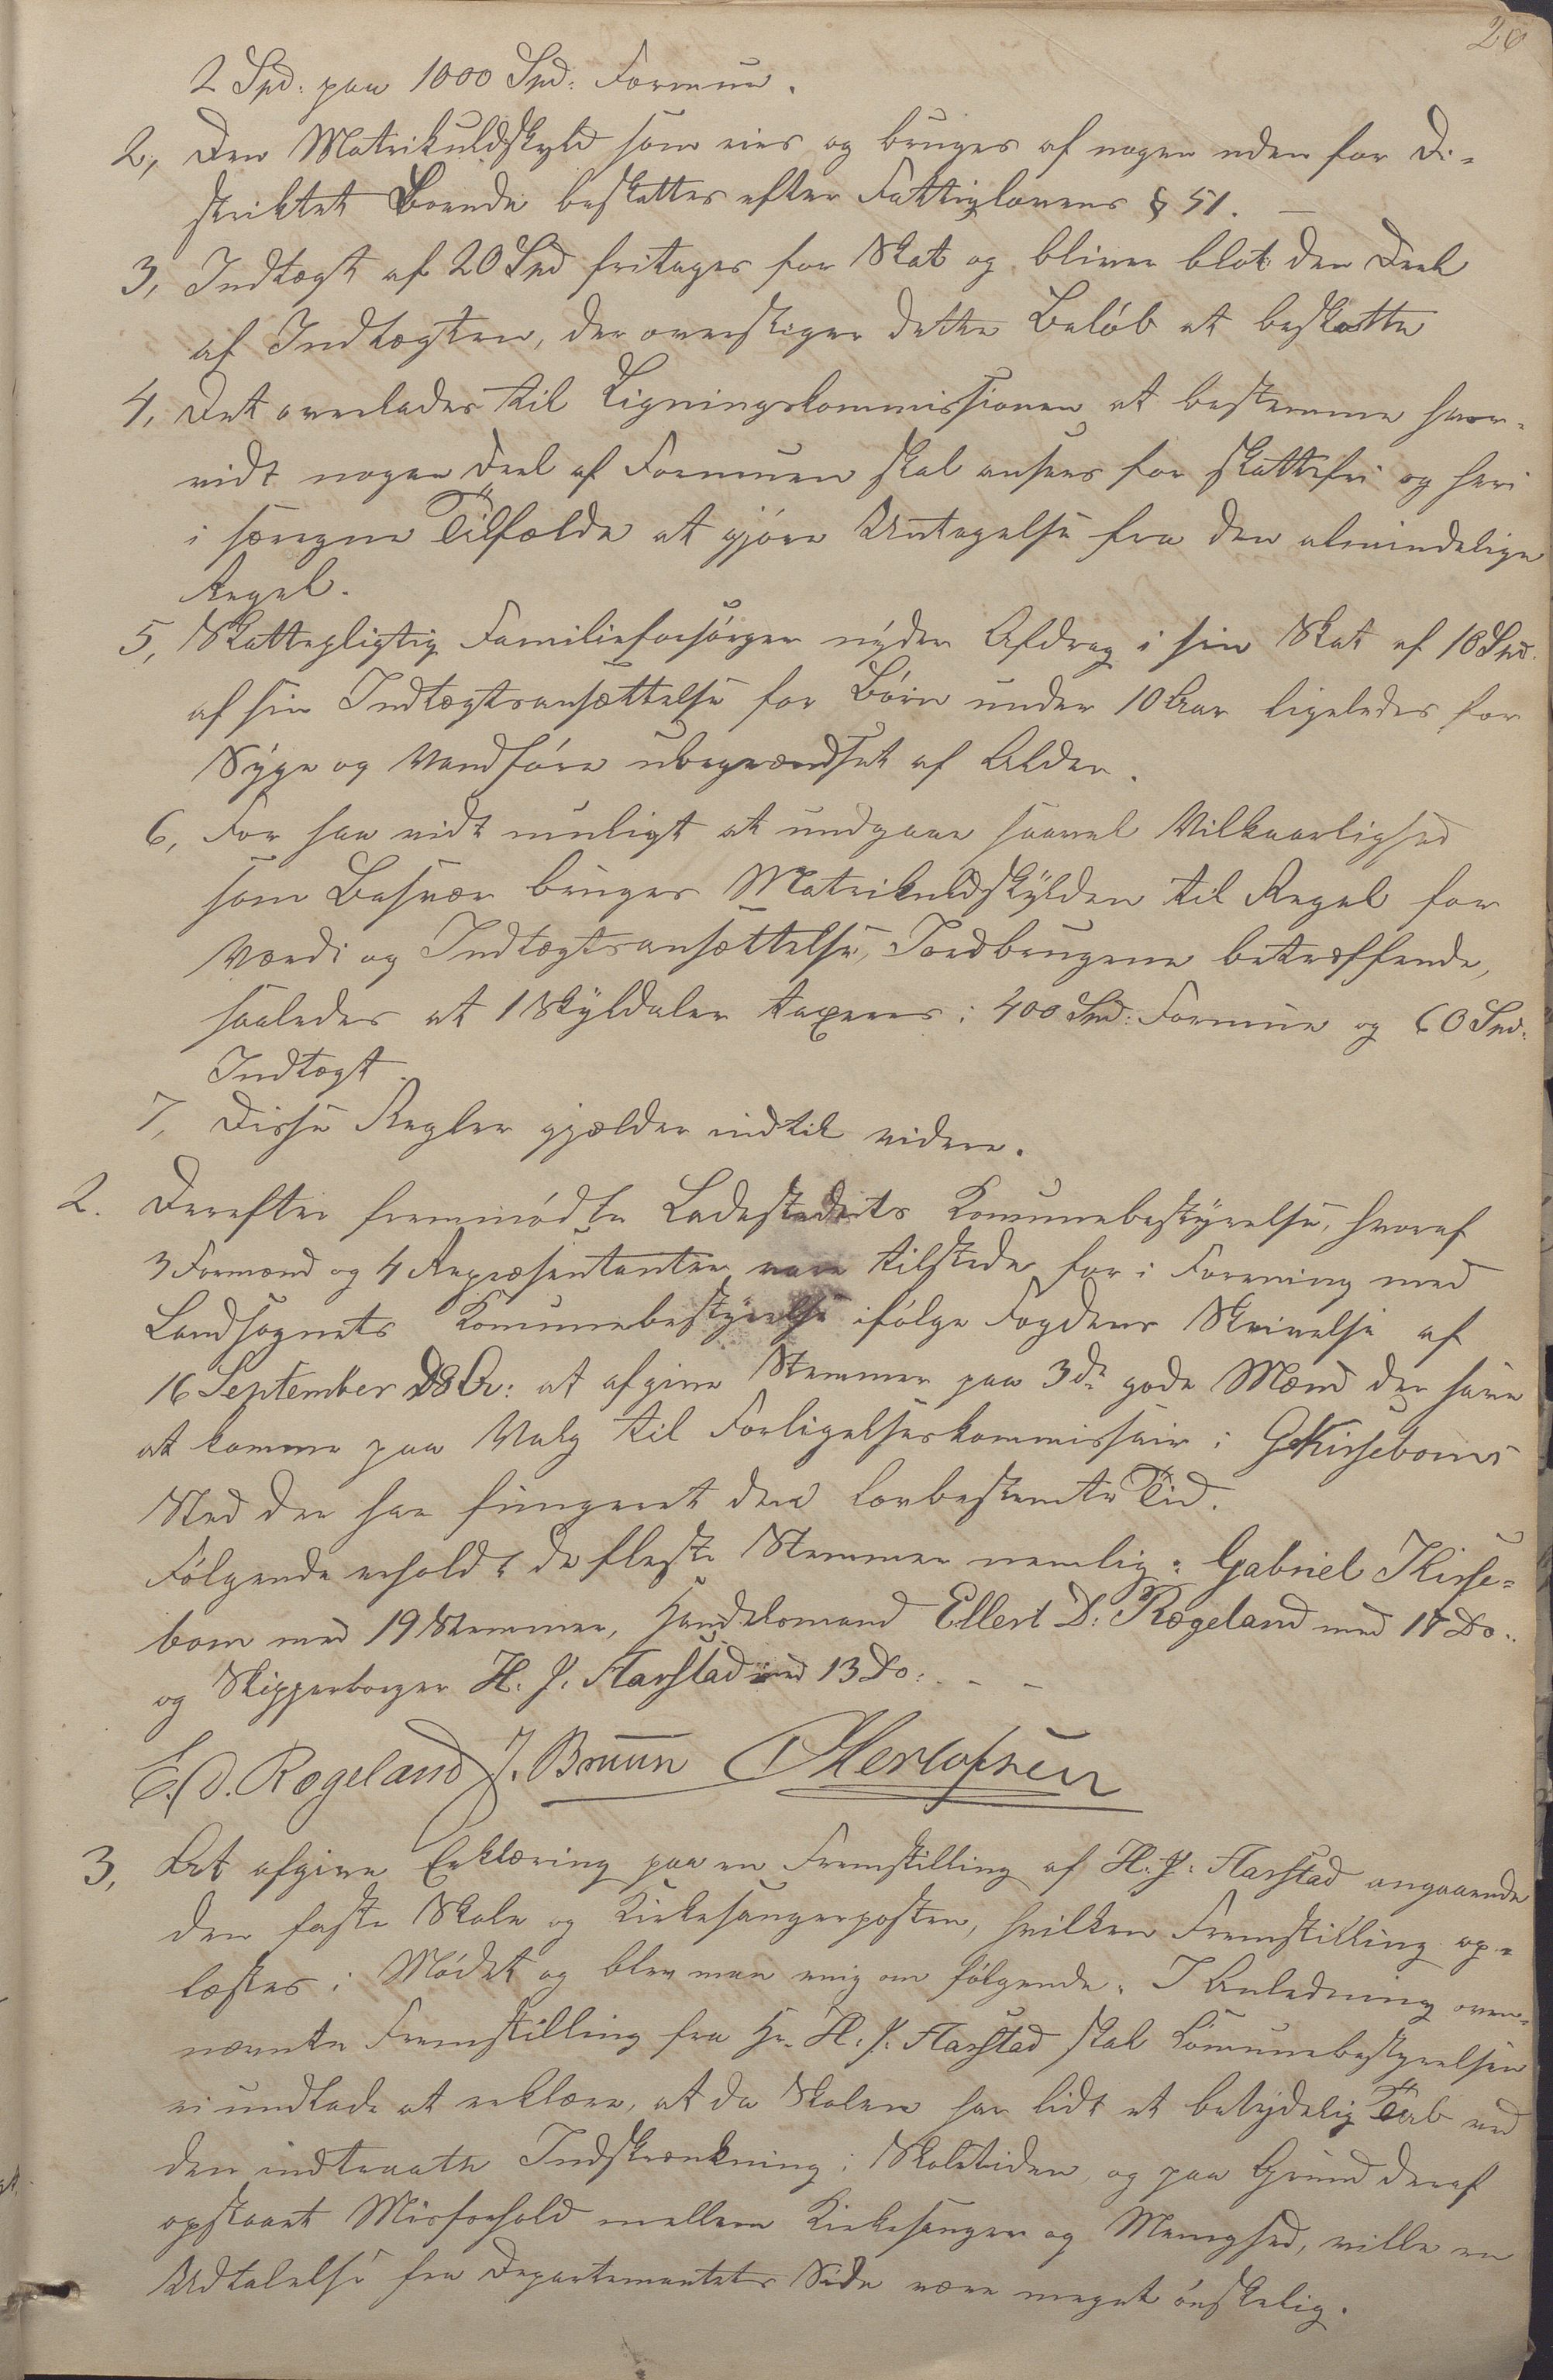 20
2 Spd: paa 1000 Spd: Formue.
2, Den Matrikulskyld som eies og bruges af nogen uden for Di-
striktet Boende beskattes efter Fattiglovens § 51. —
3, Indtægt af 20 Spd fritages for Skat og bliver blot den Deel
af Indtægten, der overstiger dette Beløb at beskatte
4, Det overlades til Ligningskommissionen at bestemme hvor-
vidt nogen Deel af Formuen skal ansees for skattefri og heri
i særegne Tilfælde at gjøre Untagelse fra den almindelige
Regel.
5, Skattepligtig Familieforsørger nyder Afdrag i sin Skat af 18 Spd.
af sin Indtægtsansættelse for Børn under 10 Aar ligeledes for
Syge og Vandføre ubegrændset af Alder.
6, For saa vidt muligt at undgaae saavel Vilkaarlighed
som Besvær bruges Matrikuldskylden til Regel for
Værdi og Indtægtsansættelse, Jordbrugene betræffende,
saaledes at 1 Skyldaler taxeres i 400 Spd: Formue og 60 Spd:
Indtægt.
7, Disse Regler gjælder indtil videre.
2. Derefter fremmødte Ladestedets Komunebestyrelse, hvoraf
3 Formænd og 4 Repræsentanter vare tilstede for i Forening med
Landsognets Komunebestyrelse ifølge Fogdens Skrivelse af
16 September D8 Ar: at afgive Stemmer paa 3de gode Mænd der have
at komme paa Valg til Forligelseskommissair i G Kirseboms
Sted der har fungeret den lovbestemte Tid.
Følgende erholdt de fleste Stemmer nemlig: Gabriel Kirse-
bom med 19 Stemmer, Handelsmand Ellert D: Rægeland med 17 Do..
og Skipperborger H. J. Harstad med 13 Do: . – –
E. D. Rægeland J. Bruun Herlofsen
3, At afgive Erklæring paa en Fremstilling af H. J. Harstad angaaende
den faste Skole og Kirkesangerposten, hvilken Fremstilling op-
læstes i Mødet og blev man enig om følgende. I Anledning oven-
nævnte Fremstilling fra Hr. H. J. Harstad skal Komunebestyrelsen
ei undlade at erklære, at da Skolen har lidt et betydelig Tab ved
den indtraadte Indskrænkning i Skoletiden, og paa Grund deraf
opstaaet Misforhold mellem Kirkesanger og Menighed, ville en
Udtalelse fra Departementets Side være meget ønskelig.